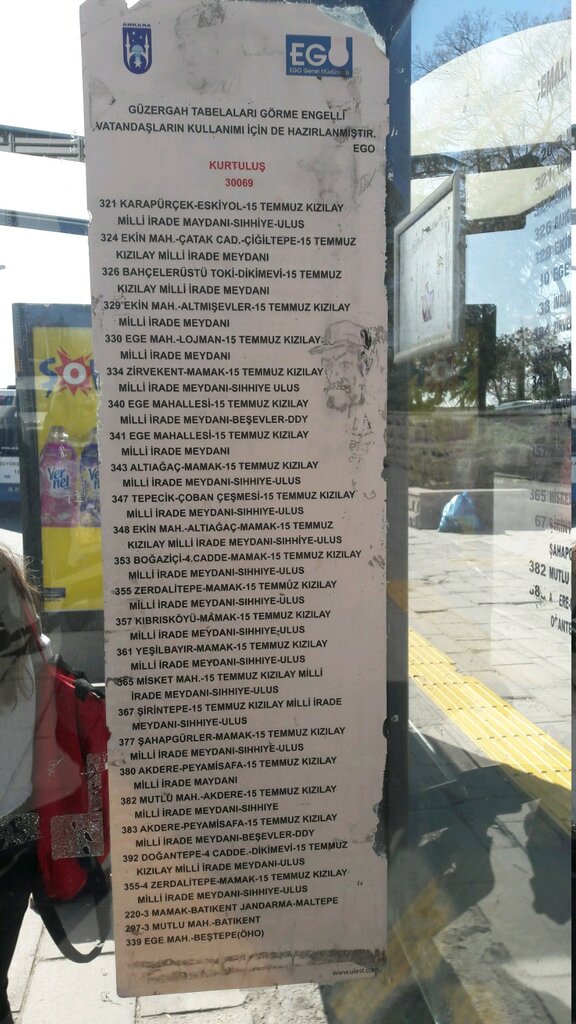 ANKARA
EGO
EGO Genel Müdürlüğü
GÜZERGAH TABELALARI GÖRME ENGELLİ
VATANDAŞLARIN KULLANIMI İÇİN DE HAZIRLANMIŞTIR.
EGO
KURTULUŞ
30069
321 KARAPÜRÇEK-ESKİYOL-15 TEMMUZ KIZILAY
MİLLİ İRADE MAYDANI-SIHHİYE-ULUS
324 EKİN MAH.-ÇATAK CAD.-ÇİĞİLTEPE-15 TEMMUZ
KIZILAY MİLLİ İRADE MEYDANI
326 BAHÇELERÜSTÜ TOKİ-DİKİMEVİ-15 TEMMUZ
KIZILAY MİLLİ İRADE MEYDANI
329 EKİN MAH.-ALTMIŞEVLER-15 TEMMUZ KIZILAY
MİLLİ İRADE MEYDANI
330 EGE MAH.-LOJMAN-15 TEMMUZ KIZILAY
MİLLİ İRADE MEYDANI
334 ZİRVEKENT-MAMAK-15 TEMMUZ KIZILAY
MİLLİ İRADE MEYDANI-SIHHIYE ULUS
340 EGE MAHALLESİ-15 TEMMUZ KIZILAY
MİLLİ İRADE MEYDANI-BEŞEVLER-DDY
341 EGE MAHALLESİ-15 TEMMUZ KIZILAY
MİLLİ İRADE MEYDANI
343 ALTIAĞAÇ-MAMAK-15 TEMMUZ KIZILAY
MİLLİ İRADE MEYDANI-SIHHIYE-ULUS
347 TEPECİK-ÇOBAN ÇEŞMESİ-15 TEMMUZ KIZILAY
MİLLİ İRADE MEYDANI-SIHHIYE-ULUS
348 EKİN MAH.-ALTIAĞAÇ-MAMAK-15 TEMMUZ
KIZILAY MİLLİ İRADE MEYDANI-SIHHIYE-ULUS
353 BOĞAZİÇİ-4.CADDE-MAMAK-15 TEMMUZ KIZILAY
MİLLİ İRADE MEYDANI-SIHHIYE-ULUS
355 ZERDALİTEPE-MAMAK-15 TEMMÜZ KIZILAY
MİLLİ İRADE MEYDANI-SIHHIYE-ULUS
357 KIBRISKÖYÜ-MAMAK-15 TEMMUZ KIZILAY
MİLLİ İRADE MEYDANI-SIHHIYE-ULUS
361 YEŞİLBAYIR-MAMAK-15 TEMMUZ KIZILAY
MİLLİ İRADE MEYDANI-SIHHIYE-ULUS
365 MİSKET MAH.-15 TEMMUZ KIZILAY MİLLİ
İRADE MEYDANI-SIHHIYE-ULUS
367 ŞİRİNTEPE-15 TEMMUZ KIZILAY MİLLİ İRADE
MEYDANI-SIHHIYE-ULUS
377 ŞAHAPGÜRLER-MAMAK-15 TEMMUZ KIZILAY
MİLLİ İRADE MEYDANI-SIHHİYE-ULUS
380 AKDERE-PEYAMİSAFA-15 TEMMUZ KIZILAY
MİLLİ İRADE MAYDANI
382 MUTLU MAH.-AKDERE-15 TEMMUZ KIZILAY
MİLLİ İRADE MEYDANI-SIHHİYE
383 AKDERE-PEYAMİSAFA-15 TEMMUZ KIZILAY
MİLLİ İRADE MEYDANI-BEŞEVLER-DDY
392 DOĞANTEPE-4 CADDE.-DİKİMEVİ-15 TEMMUZ
KIZILAY MİLLİ İRADE MEYDANI-ULUS
355-4 ZERDALİTEPE-MAMAK-15 TEMMUZ KIZILAY
MİLLİ İRADE MEYDANI-SIHHIYE-ULUS
220-3 MAMAK-BATIKENT JANDARMA-MALTEPE
297-3 MUTLU MAH.-BATIKENT
339 EGE MAH.-BEŞTEPE(ÖHO)
www.ulest.com
ŞOK
Vernel
365 MİSKE
382 MUTLU